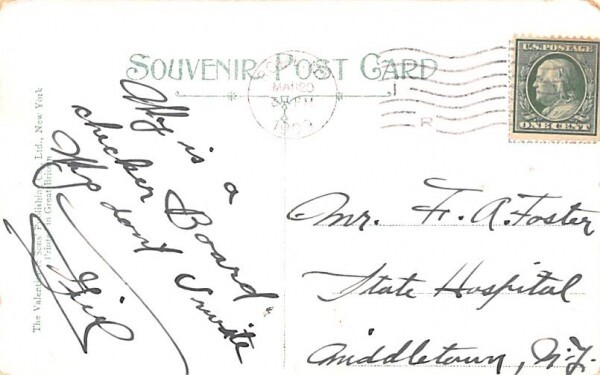 SOUVENIR POST CARD
MAR 29
3 PM
1909
R
U.S. POSTAGE
ONE CENT
The Valentine & Sons' Publishing Co., Ltd., New York
Printed in Great Britain
Why is a
checker Board
Why don't I write
Mr. F. A. Foster
State Hospital
Middletown, N.Y.